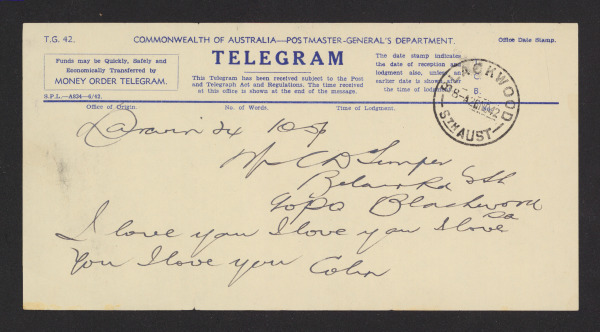 T.G. 42.
COMMONWEALTH OF AUSTRALIA—POSTMASTER-GENERAL'S DEPARTMENT.
Office Date Stamp.
Funds may be Quickly, Safely and
Economically Transferred by
MONEY ORDER TELEGRAM.
TELEGRAM
This Telegram has been received subject to the Post
and Telegraph Act and Regulations. The time received
at this office is shown at the end of the message.
The date stamp indicates
the date of reception and
lodgment also, unless an
earlier date is shown after
the time of lodgment
BLACKWOOD
STH AUST
Office of Origin.
No. of Words.
Time of Lodgment.
Darwin 24
Mrs C D
Sth
Blackwood
SA
I love you I love you I love
You I love you Colin